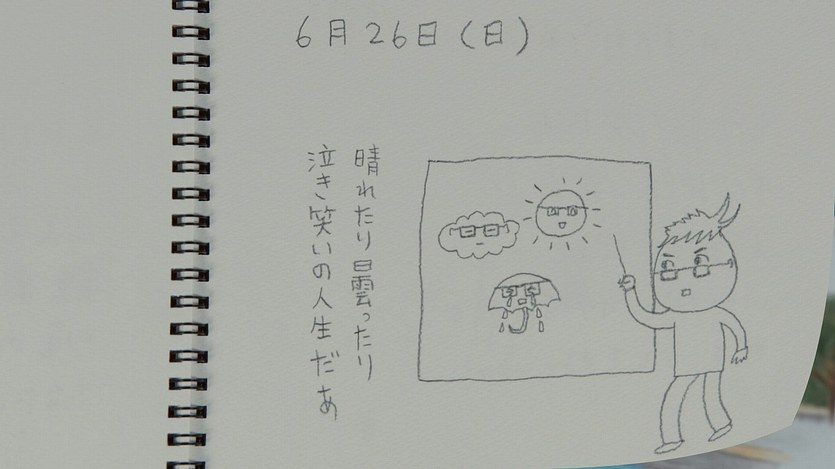 6月26日(日)
晴れたり曇ったり
泣き笑いの人生だあ